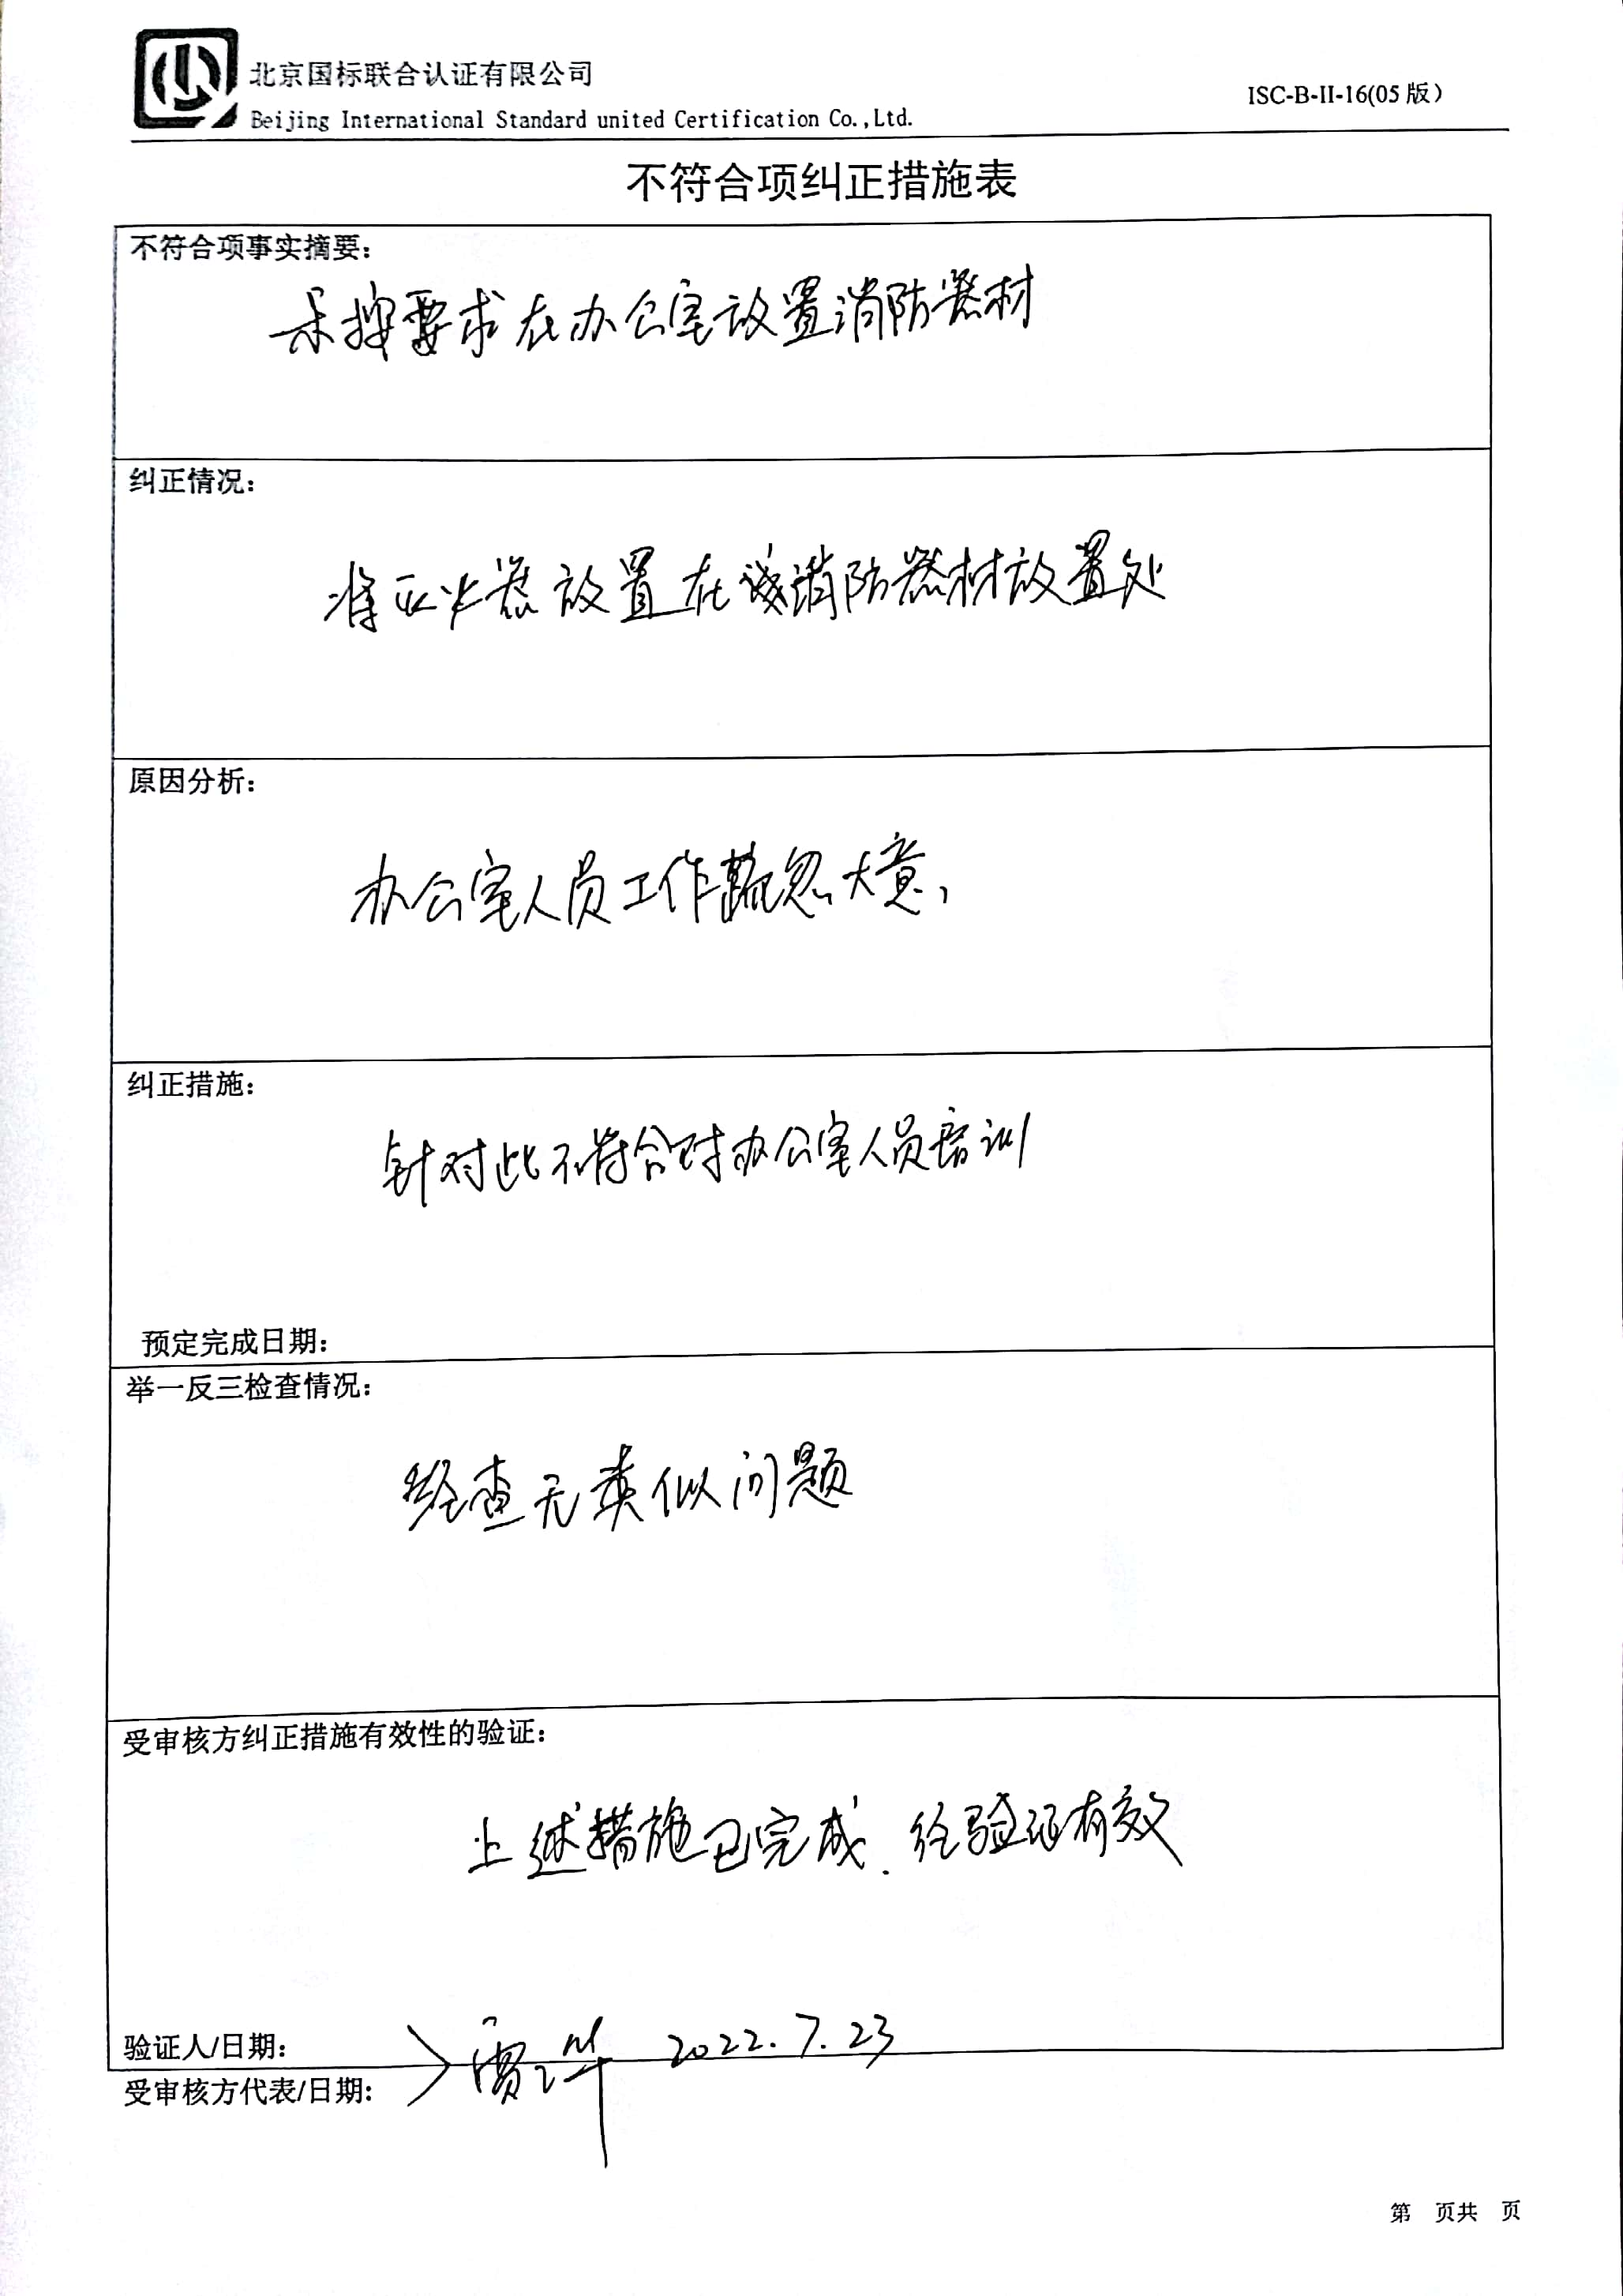 北京国标联合认证有限公司
Beijing International Standard united Certification Co.,Ltd.
ISC-B-II-16(05版)
不符合项纠正措施表
不符合项事实摘要:
未按要求在办公室放置消防器材
纠正情况:
将灭火器放置在该消防器材放置处
原因分析:
办公室人员工作疏忽大意,
纠正措施:
针对此不符合对办公室人员培训
预定完成日期:
举一反三检查情况:
经查无类似问题
受审核方纠正措施有效性的验证:
上述措施已完成.经验证有效
验证人/日期:
2022.7.23
受审核方代表/日期:
第 页共 页